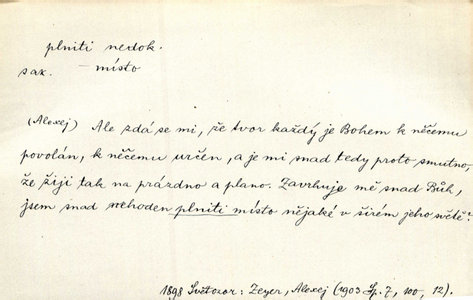 plniti nedok.
sax. — místo
(Alexej) Ale zdá se mi, že tvor každý je Bohem k něčemu
povolán, k něčemu určen, a je mi snad tedy proto smutno,
že žiji tak na prázdno a plano. Zavrhuje mě snad Bůh,
jsem snad nehoden plniti místo nějaké v širém jeho světě?
1898 Světozor: Zeyer, Alexej (1903 Sp. 7, 100, 12).